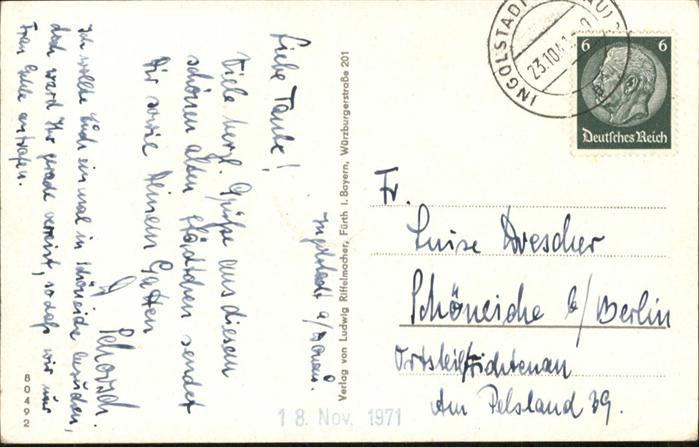 Ingolstadt a/Donau.
Liebe Tante!
Viele herzl. Grüße aus diesem
schönen alten Städtchen sendet
Dir sowie Deinem Gatten
Schorsch.
Ich wollte Euch einmal in Schöneiche besuchen,
doch ward Ihr gerade verreist, sodaß wir nur
Frau antrafen.
80492
Verlag von Ludwig Riffelmacher, Fürth i. Bayern, Würzburgerstraße 201
INGOLSTADT
23.10.41
6 6
Deutsches Reich
Fr.
Luise Drescher
Schöneiche b/Berlin
Ortsteil Fichtenau
Am Pelsland 39.
18. Nov. 1971